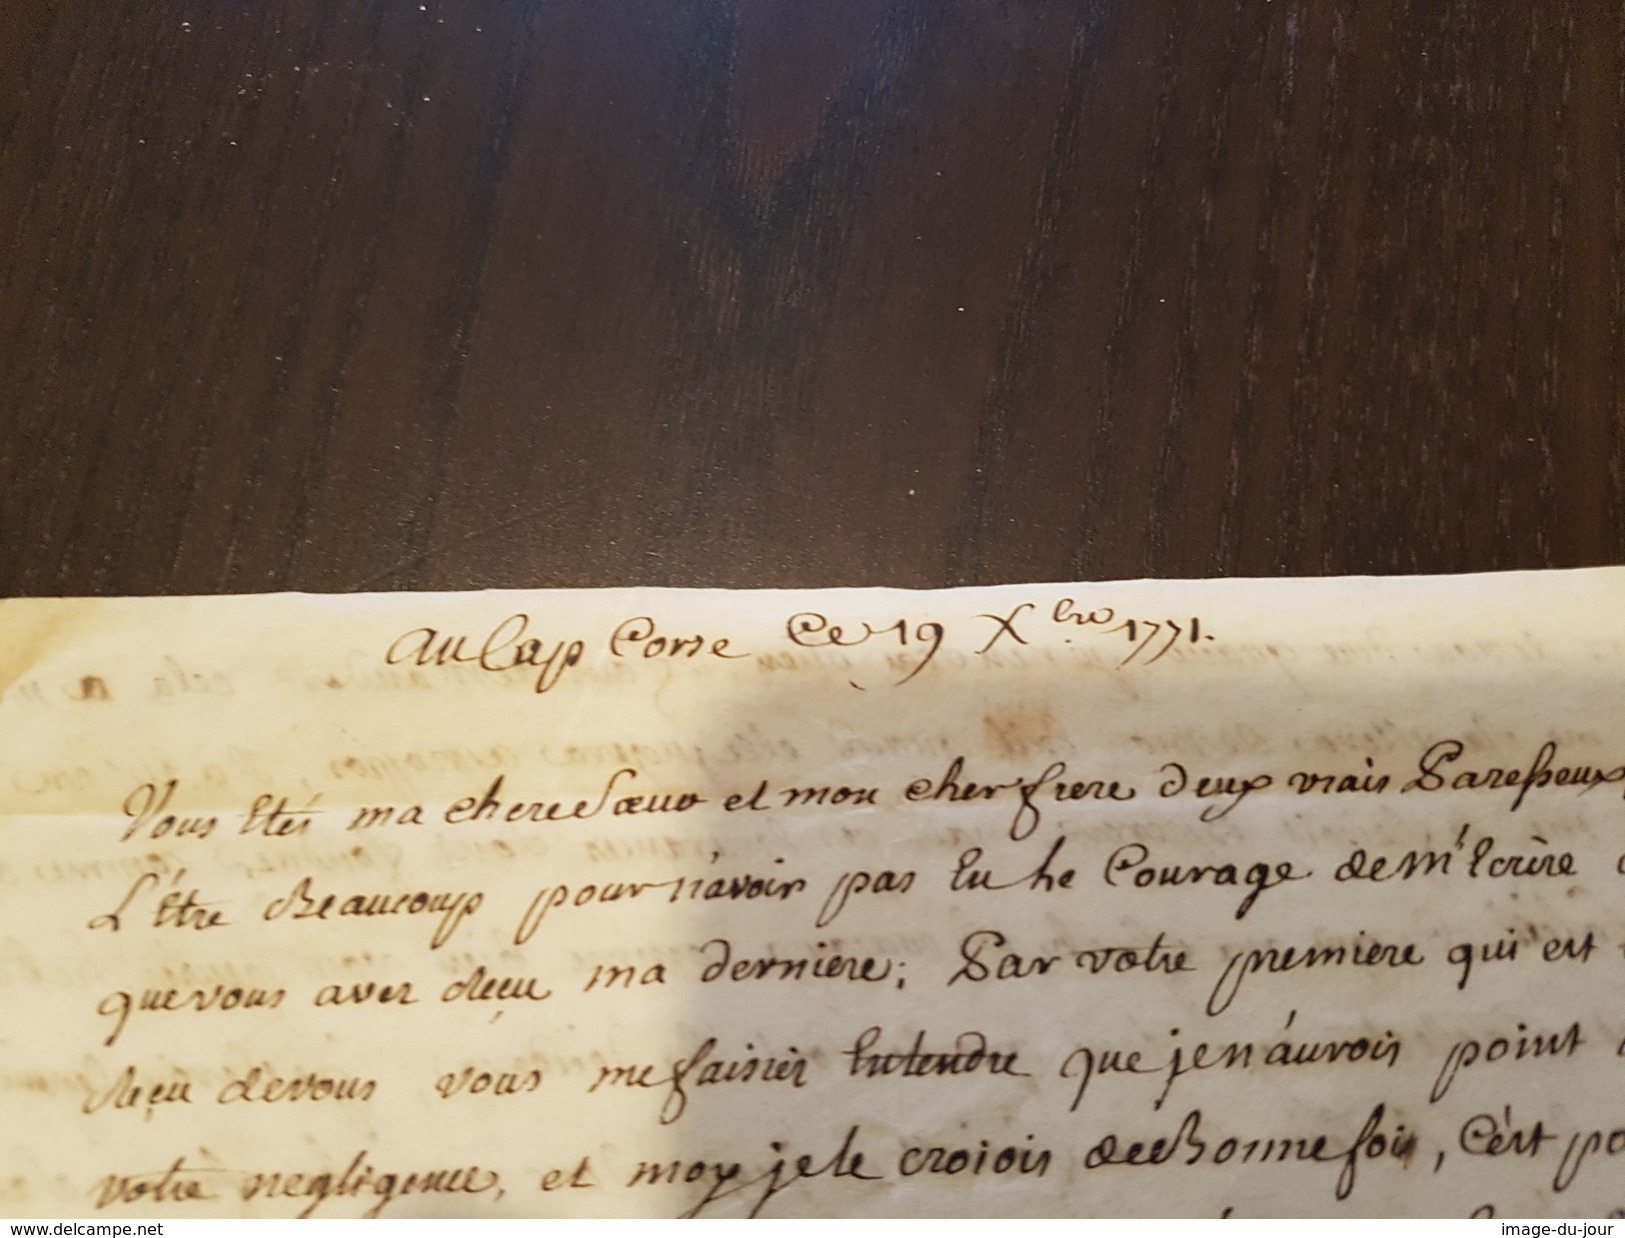 Au Cap Corse Ce 19 Xbre 1771.
Vous Etés ma chere Sœur et mon cher frere deux vrais Paresseux,
L'être Beaucoup pour n'avoir pas Eu le Courage de m'Ecrire
que vous aver Reçu ma derniére; Par votre premiere qui est
Reçu de vous vous me faisier Entendre que je n'áurois point
votre negligence, et moy je le croiois de Bonne fois, C'ést po
www.delcampe.net
image-du-jour